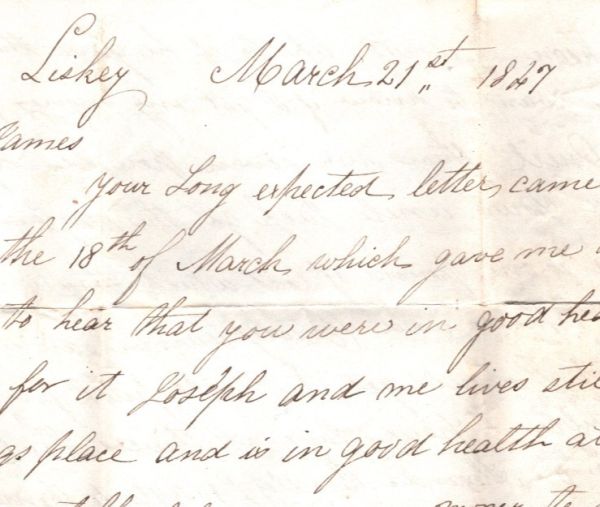 Liskey March 21st 1847
James
your Long expected letter came
the 18th of March which gave me
to hear that you were in good hea
for it Joseph and me lives stil
gs place and is in good health at